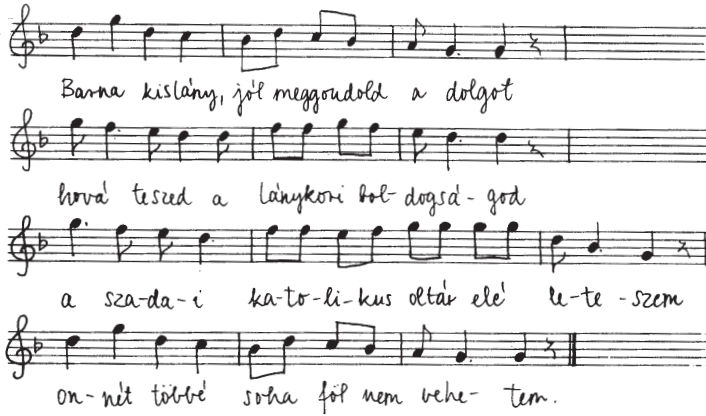 Barna kislány, jól meggondold a dolgot
hová teszed a lánykori bol-dogsá-god
a sza-da-i ka-to-li-kus oltár elé le-te-szem
on-nét többé soha föl nem vehe-tem.